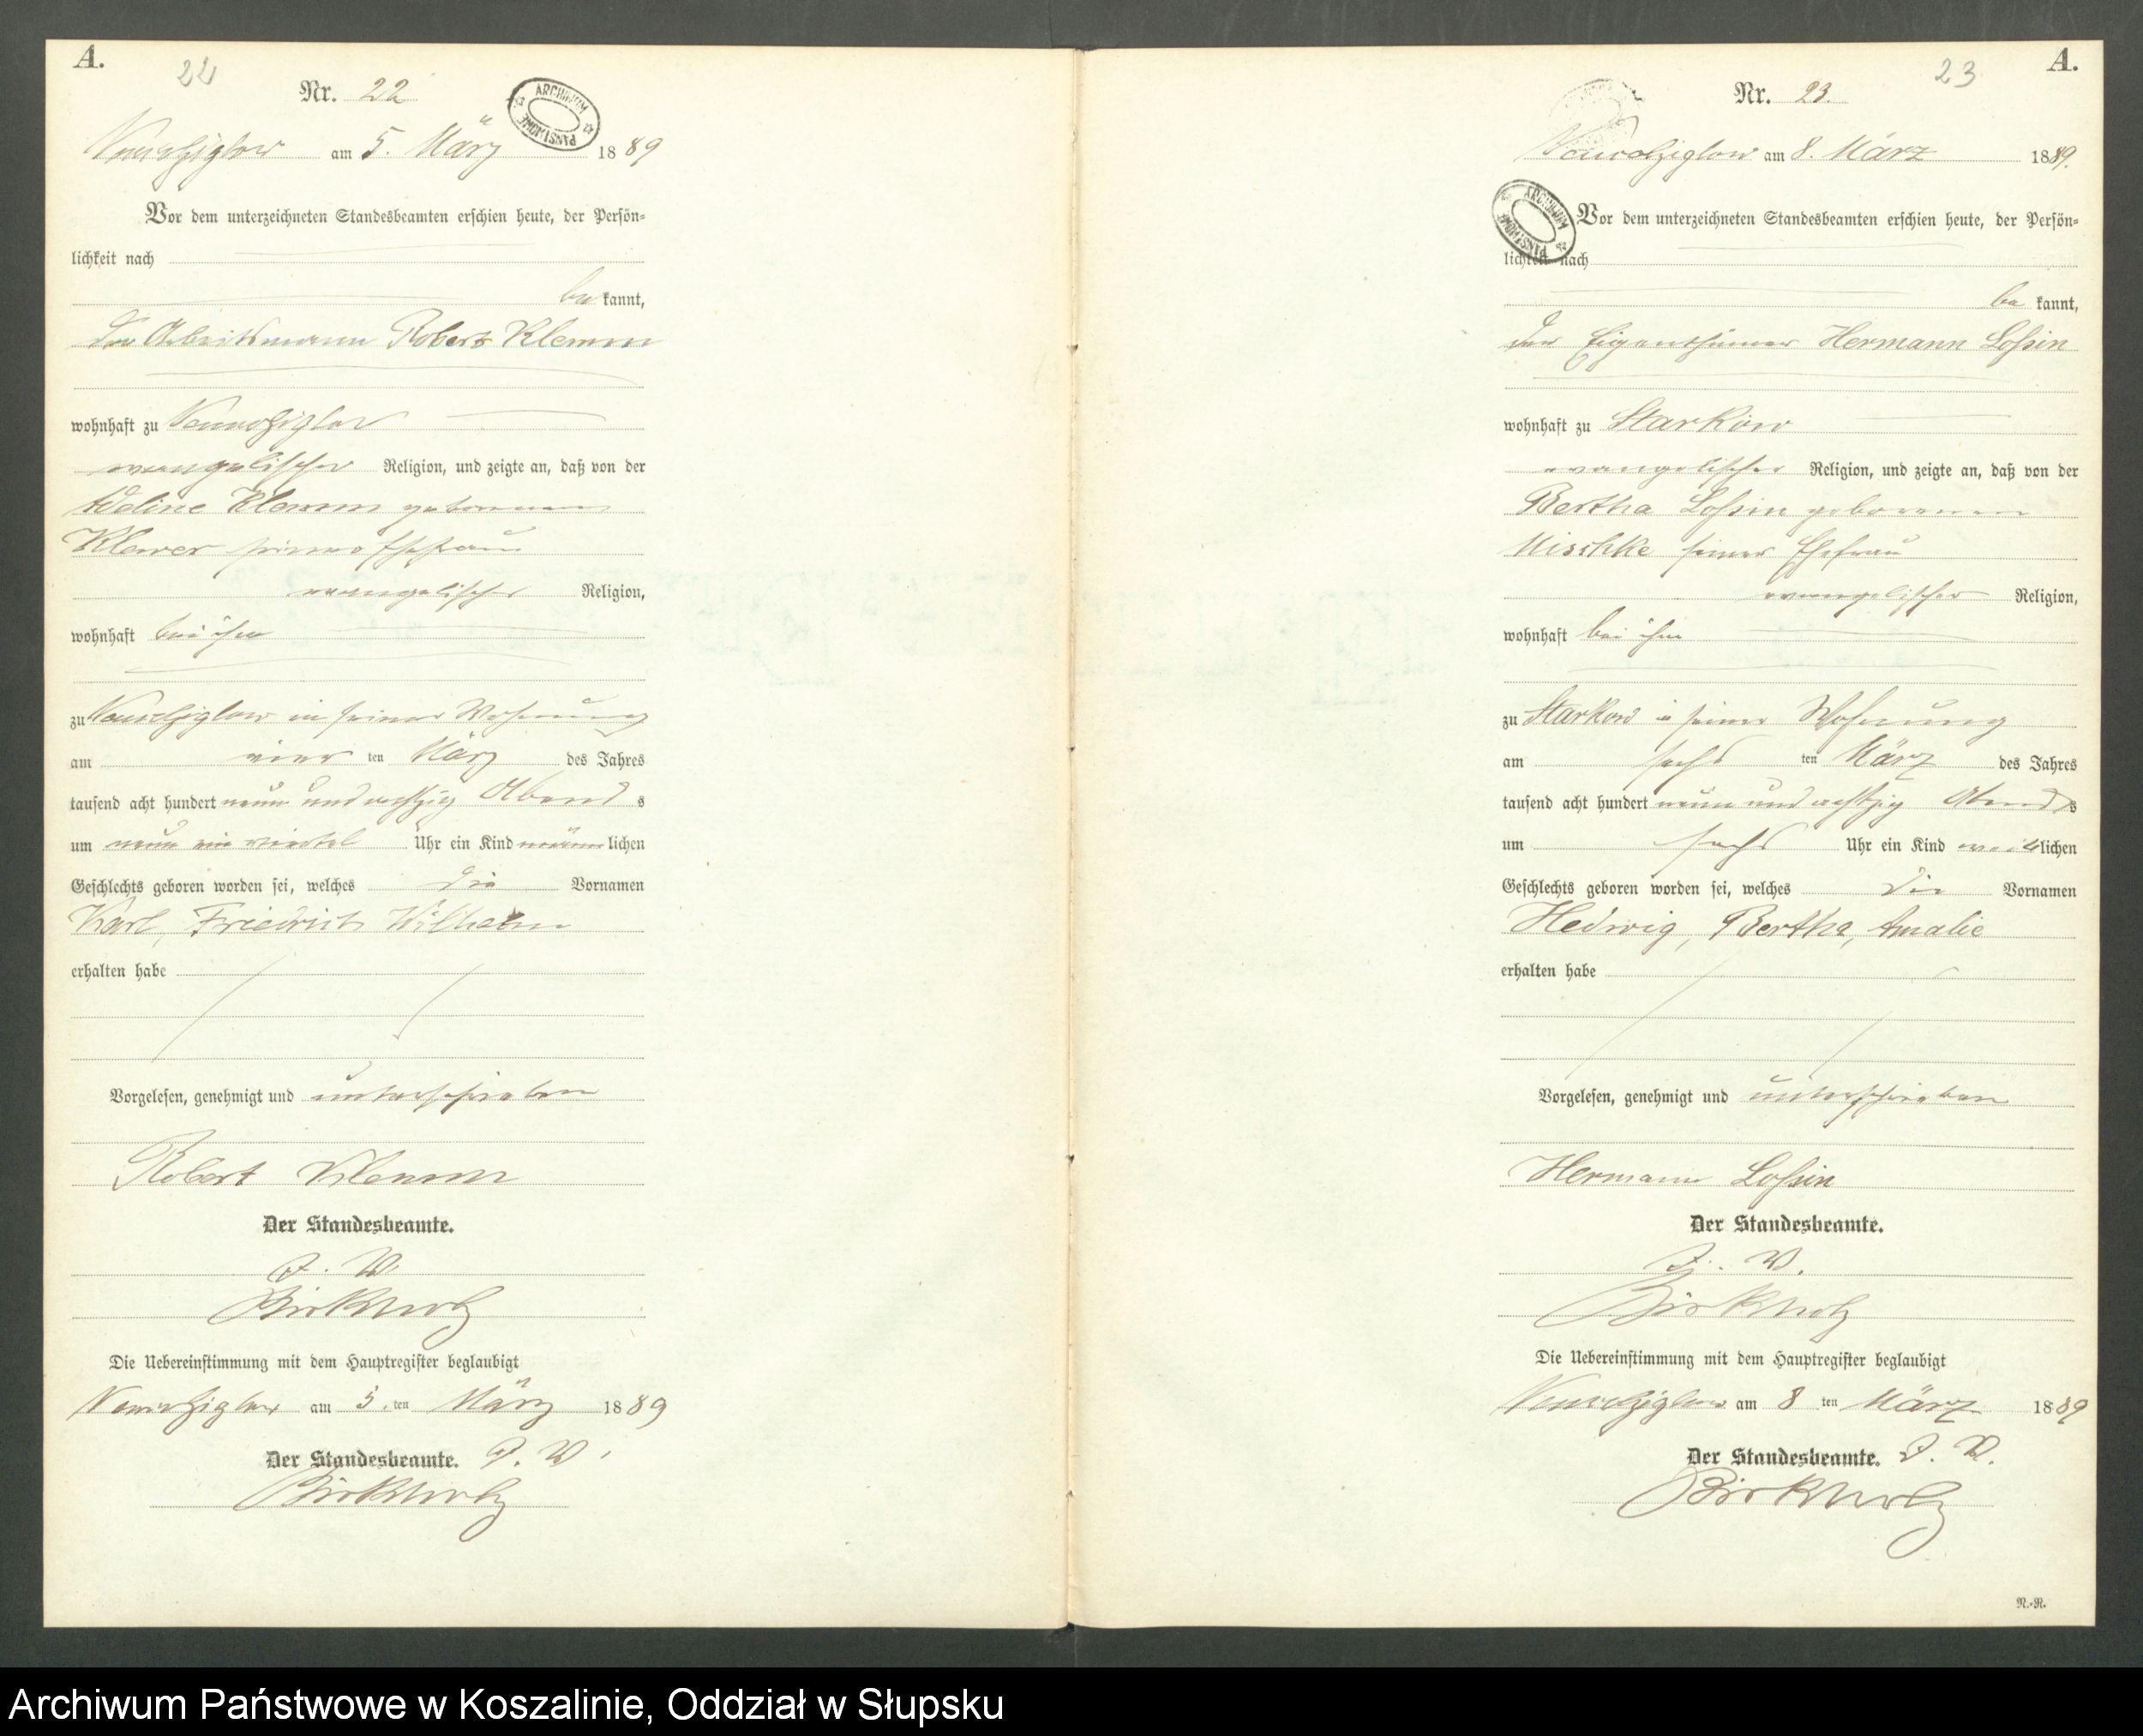 A.
22
Nr. 22
ARCHIWUM PAŃSTWOWE
am 5. März 1889
Vor dem unterzeichneten Standesbeamten erschien heute, der Persön-
lichkeit nach
be kannt,
der Arbeitsmann Robert Klemm
wohnhaft zu
evangelischer Religion, und zeigte an, daß von der
Adeline Klemm geborenen
Klewer seiner Ehefrau
evangelischer Religion,
wohnhaft bei ihm
zu in seiner Wohnung
am vier ten März des Jahres
tausend acht hundert neun und achtzig Abend s
um neun ein viertel Uhr ein Kind männ lichen
Geschlechts geboren worden sei, welches die Vornamen
Karl, Friedrich Wilhelm
erhalten habe
Vorgelesen, genehmigt und unterschrieben
Robert Klemm
Der Standesbeamte.
J. V.
Birkholz
Die Uebereinstimmung mit dem Hauptregister beglaubigt
am 5. ten März 1889
Der Standesbeamte. J. V.
Birkholz
A.
23
Nr. 23.
ARCHIWUM PAŃSTWOWE
am 8. März 1889.
Vor dem unterzeichneten Standesbeamten erschien heute, der Persön-
lichkeit nach
be kannt,
der Eigenthümer Hermann Loßin
wohnhaft zu Starkow
evangelischer Religion, und zeigte an, daß von der
Bertha Loßin geborenen
Mischke seiner Ehefrau
evangelischer Religion,
wohnhaft bei ihm
zu Starkow in seiner Wohnung
am sechs ten März des Jahres
tausend acht hundert neun und achtzig Abend s
um sechs Uhr ein Kind weib lichen
Geschlechts geboren worden sei, welches die Vornamen
Hedwig, Bertha, Amalie
erhalten habe
Vorgelesen, genehmigt und unterschrieben
Hermann Loßin
Der Standesbeamte.
J. V.
Birkholz
Die Uebereinstimmung mit dem Hauptregister beglaubigt
am 8 ten März 1889
Der Standesbeamte. J. V.
Birkholz
N.-N.
Archiwum Państwowe w Koszalinie, Oddział w Słupsku